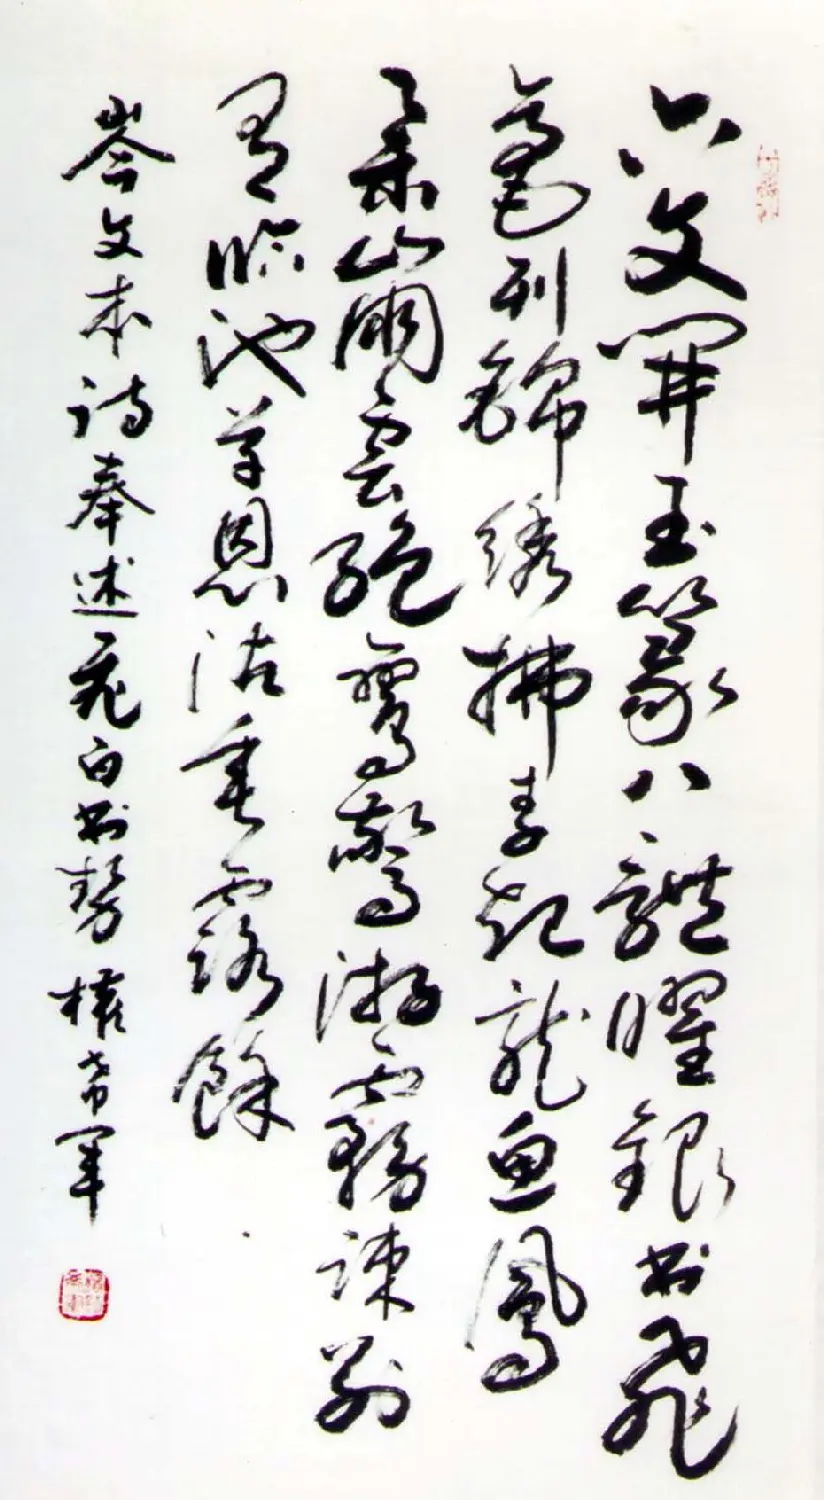 六文開玉篆八體曜銀書飛
毫列錦绣拂素起龍魚鳳
舉崩雲绝鸞驚游霧疎別
有临池草恩沾垂露餘
岑文本诗奉述飛白書勢 權希军